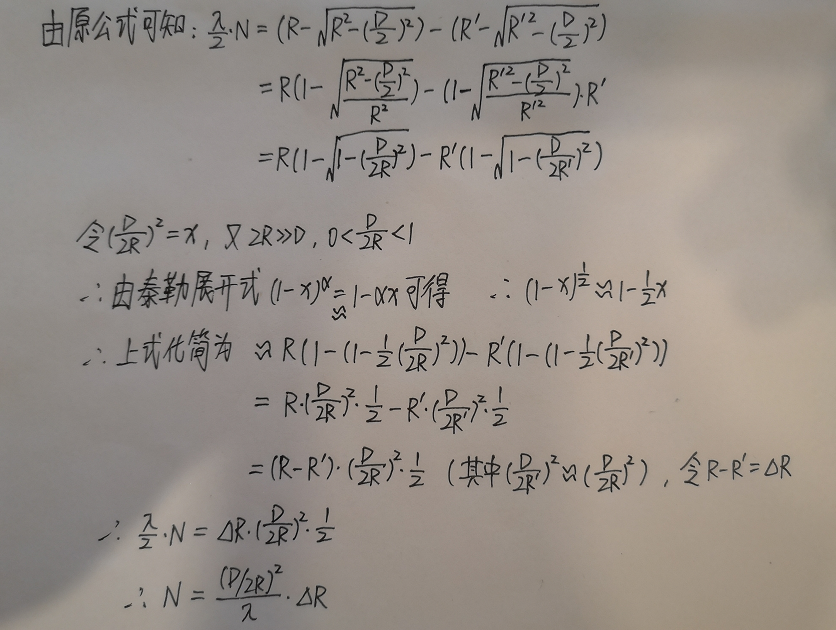 由原公式可知: λ/2·N = (R-√(R²-(D/2)²)) - (R'-√(R'²-(D/2)²))
= R(1-√((R²-(D/2)²)/R²)) - (1-√((R'²-(D/2)²)/R'²))·R'
= R(1-√(1-(D/2R)²)) - R'(1-√(1-(D/2R')²))
令(D/2R)²=x, 又 2R≫D, 0<D/2R<1
∴由泰勒展开式 (1-x)^α ≈ 1-αx 可得 ∴ (1-x)^(1/2) ≈ 1-1/2x
∴上式化简为 ≈ R(1-(1-1/2(D/2R)²)) - R'(1-(1-1/2(D/2R')²))
= R·(D/2R)²·1/2 - R'·(D/2R')²·1/2
= (R-R')·(D/2R')²·1/2 (其中(D/2R')²≈(D/2R)²), 令R-R'=ΔR
∴ λ/2·N = ΔR·(D/2R)²·1/2
∴ N = (D/2R)²/λ · ΔR